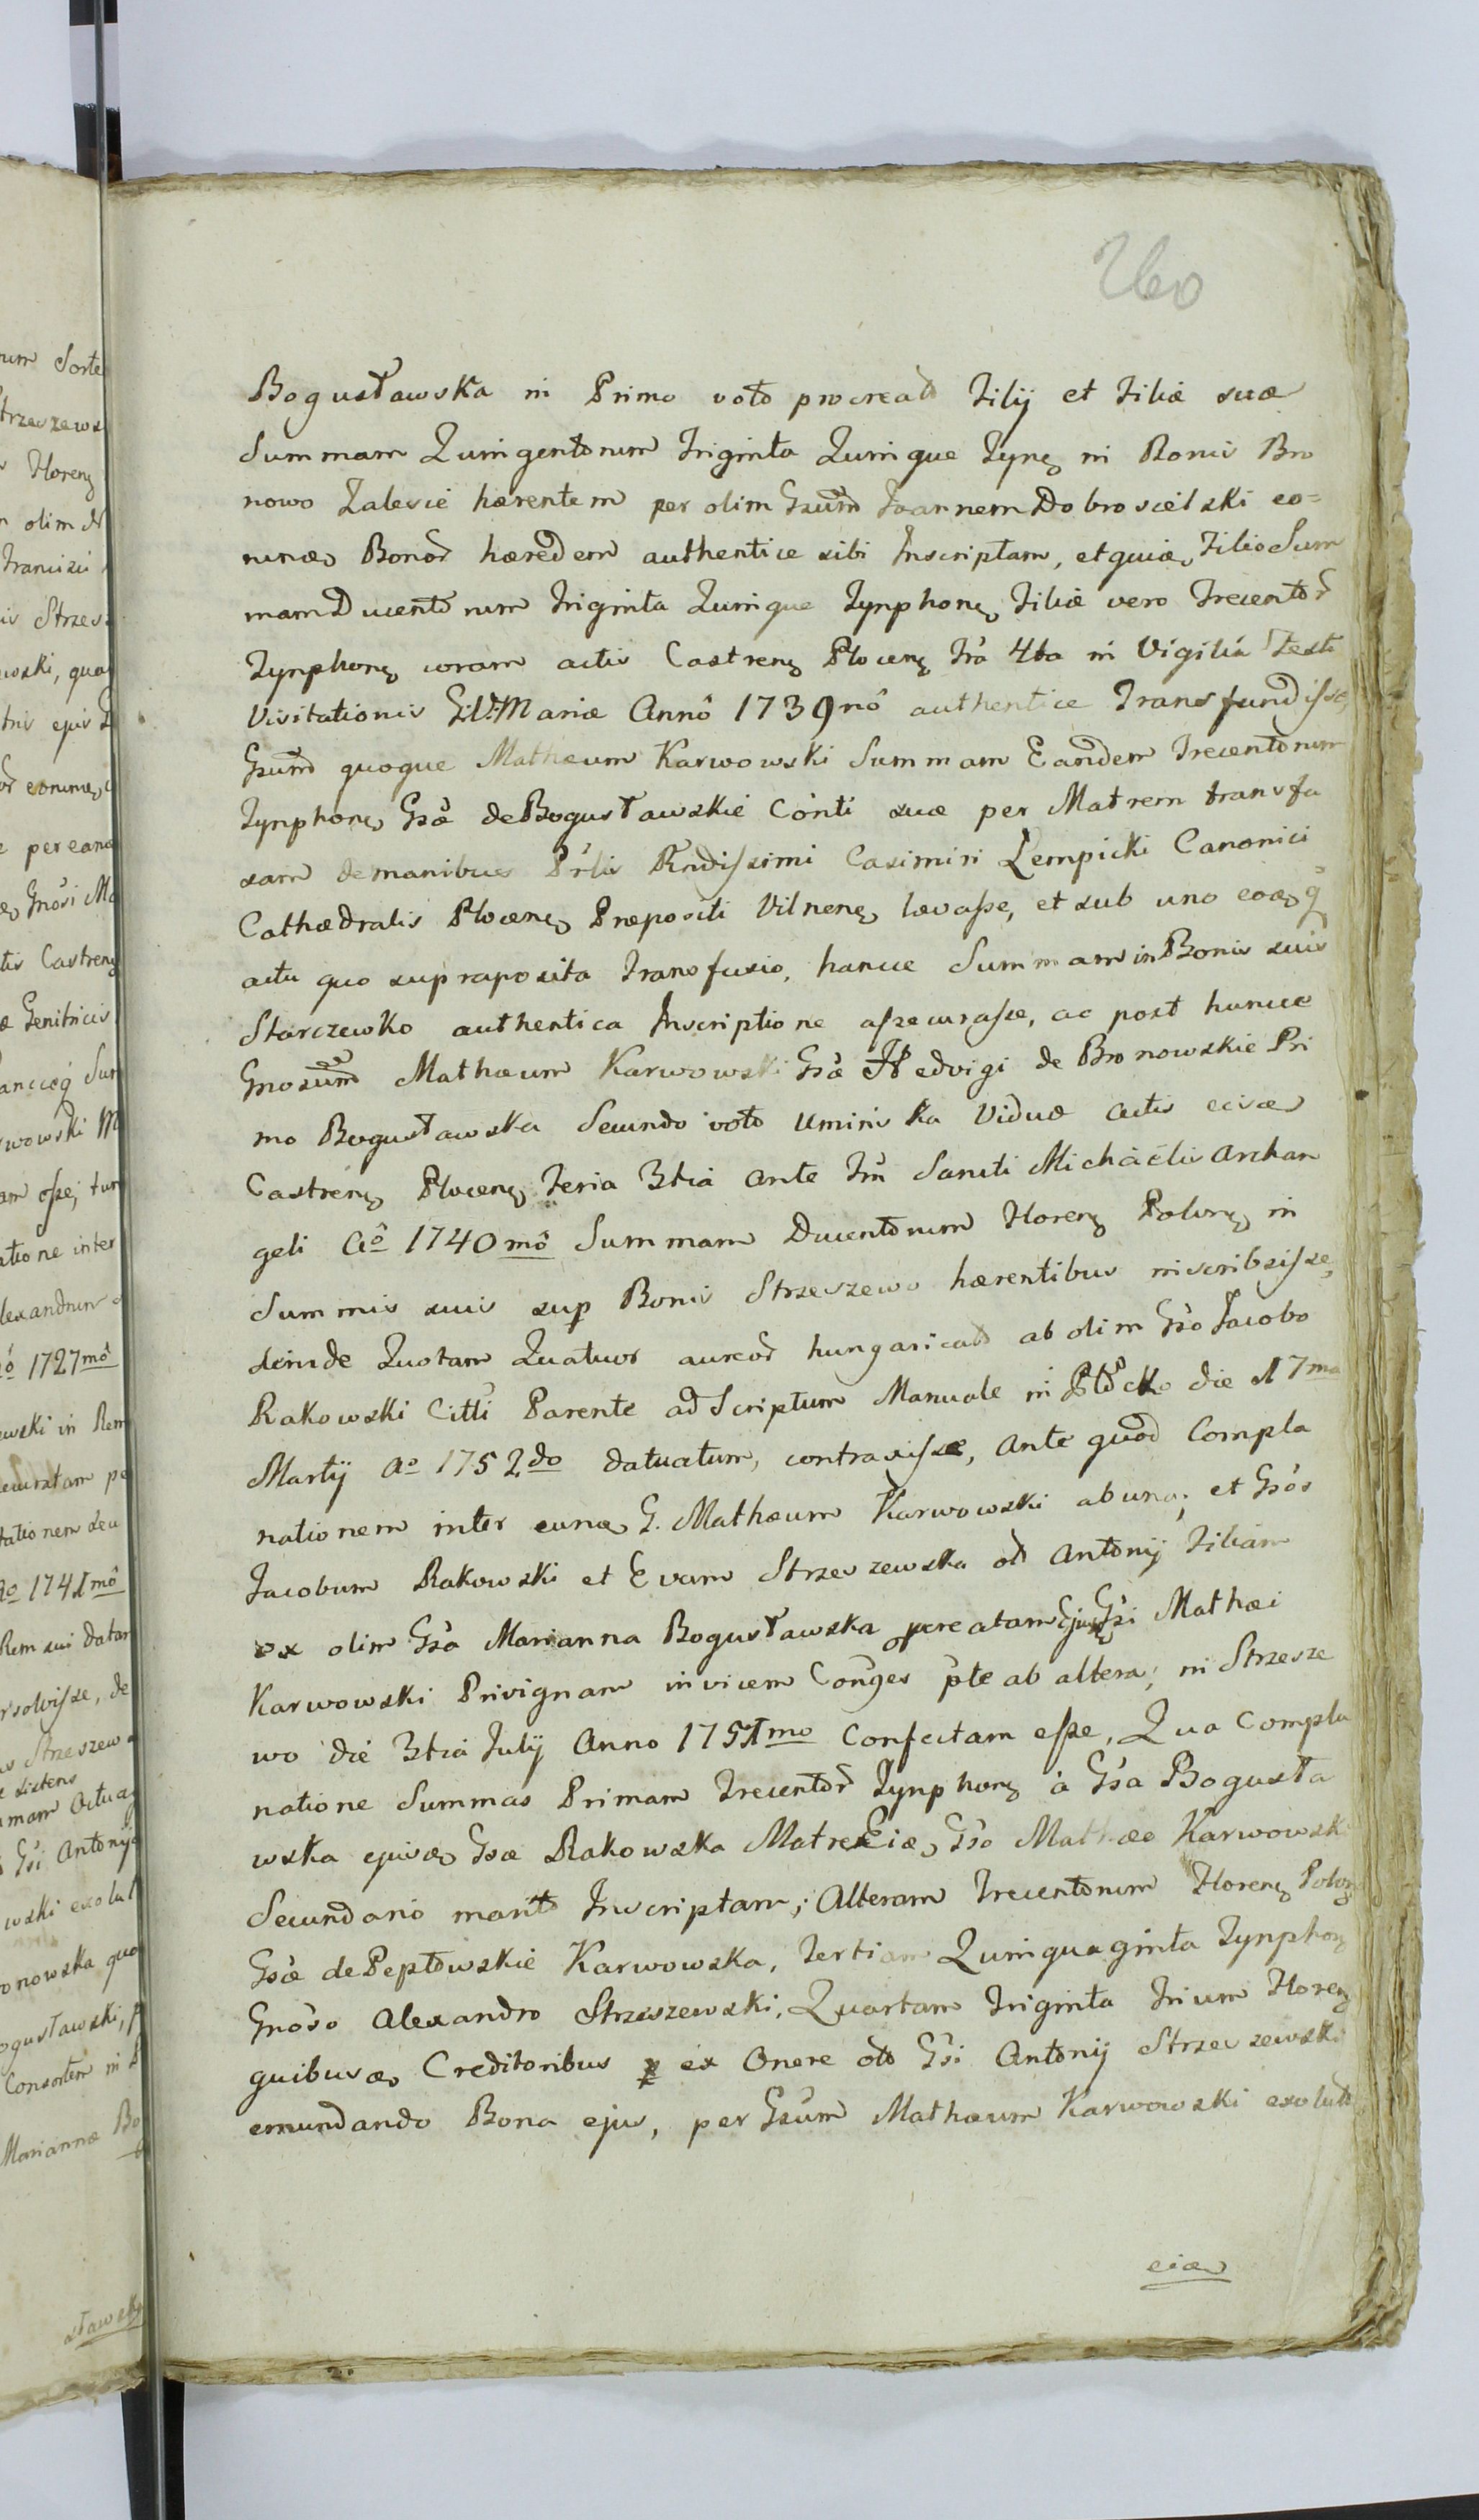 260
Bogusławska in Primo voto procreato Filij et Filiæ suæ
Summam Quingentorum Triginta Quinque Tynẽ in Bonis Bro
nowo Zalesie hærentem per olim Gsum Joannem Dobrosielski eo=
rundẽ Bonor hæredem authentice sibi Inscriptam, et quidẽ Filio Sum
mam Ducentorum Triginta Quinque Tynphonẽ Filiæ vero Trecentor
Tynphonẽ coram actis Castrenẽ Plocenẽ Fra 4ta in Vigilia Festi
Visitationis B:V:Mariæ Anno 1739no authentice Transfundisse,
Gsum quoque Mathæum Karwowski Summam Eandem Trecentorum
Tynphonẽ Gsæ de Bogusławskie Conti suæ per Matrem transfu
sam de manibus Prlis Rndissimi Casimiri Lempicki Canonici
Cathædralis Plocenẽ Præpositi Vilnenẽ lævasse, et sub uno eodẽq
actu quo supraposita Transfusio, hancce Summam in Bonis suis
Starczewko authentica Inscriptione assecurasse, ac post huncce
Gnosum Mathæum Karwowski Gsæ Hedvigi de Bronowskie Pri
mo Bogusławska Secundo voto Uminska Viduæ actis eisdẽ
Castrenẽ Plocenẽ Feria 3tia ante Fm Sancti Michaelis Archan
geli Ao 1740mo Summam Ducentorum Florenẽ Polonẽ in
Summis suis sup Bonis Strzeszewo hærentibus inscribsisse,
deinde Quotam Quatuor aureor hungaricato ab olim Gso Jacobo
Rakowski Citti Parente ad Scriptum Manuale in Płocko die 17ma
Martij Ao 1752do datuatum, contraxisse, ante quod Compla
nationem inter eundẽ G. Mathæum Karwowski ab una; et Gsos
Jacobum Rakowski et Evam Strzeszewska oto Antonij Filiam
ex olim Gsa Marianna Bogusławska pcreatam Ejusdẽ Gsi Mathæi
Karwowski Privignam invicem Conges pte ab altera; in Strzesze
wo die 3tia Julij Anno 1751mo Confectam esse, Qua Compla
natione Summas Primam Trecentor Tynphonẽ a Gsa Bogusła
wska ejusdẽ Gsæ Rakowska Matre Eidẽ Gso Mathæo Karwowski
Secundario marito Inscriptam; Alteram Trecentorum Florenẽ Polonẽ
Gsæ de Pepłowskie Karwowska, Tertiam Quinquaginta Tynphonẽ
Gnoso Alexandro Strzeszewski, Quartam Triginta Trium Florenẽ
quibusdẽ Creditoribus ex Onere oto Gsi Antonij Strzeszewski
emundando Bona ejus, per Gsum Mathæum Karwowski exoluto
eidẽ